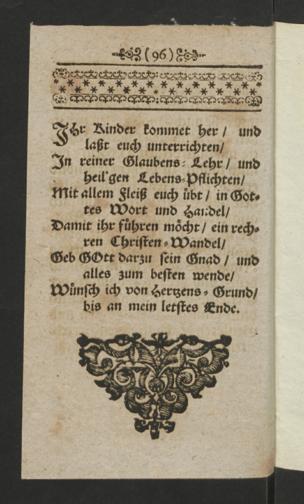 (96)
Ihr Kinder kommet her / und
laßt euch unterrichten /
In reiner Glaubens-Lehr / und
heil'gen Lebens-Pflichten /
Mit allem Fleiß euch übt / in Got-
tes Wort und Handel /
Damit ihr führen möcht / ein rech-
ren Christen-Wandel /
Geb GOtt darzu sein Gnad / und
alles zum besten wende /
Wünsch ich von Hertzens-Grund /
bis an mein letstes Ende.